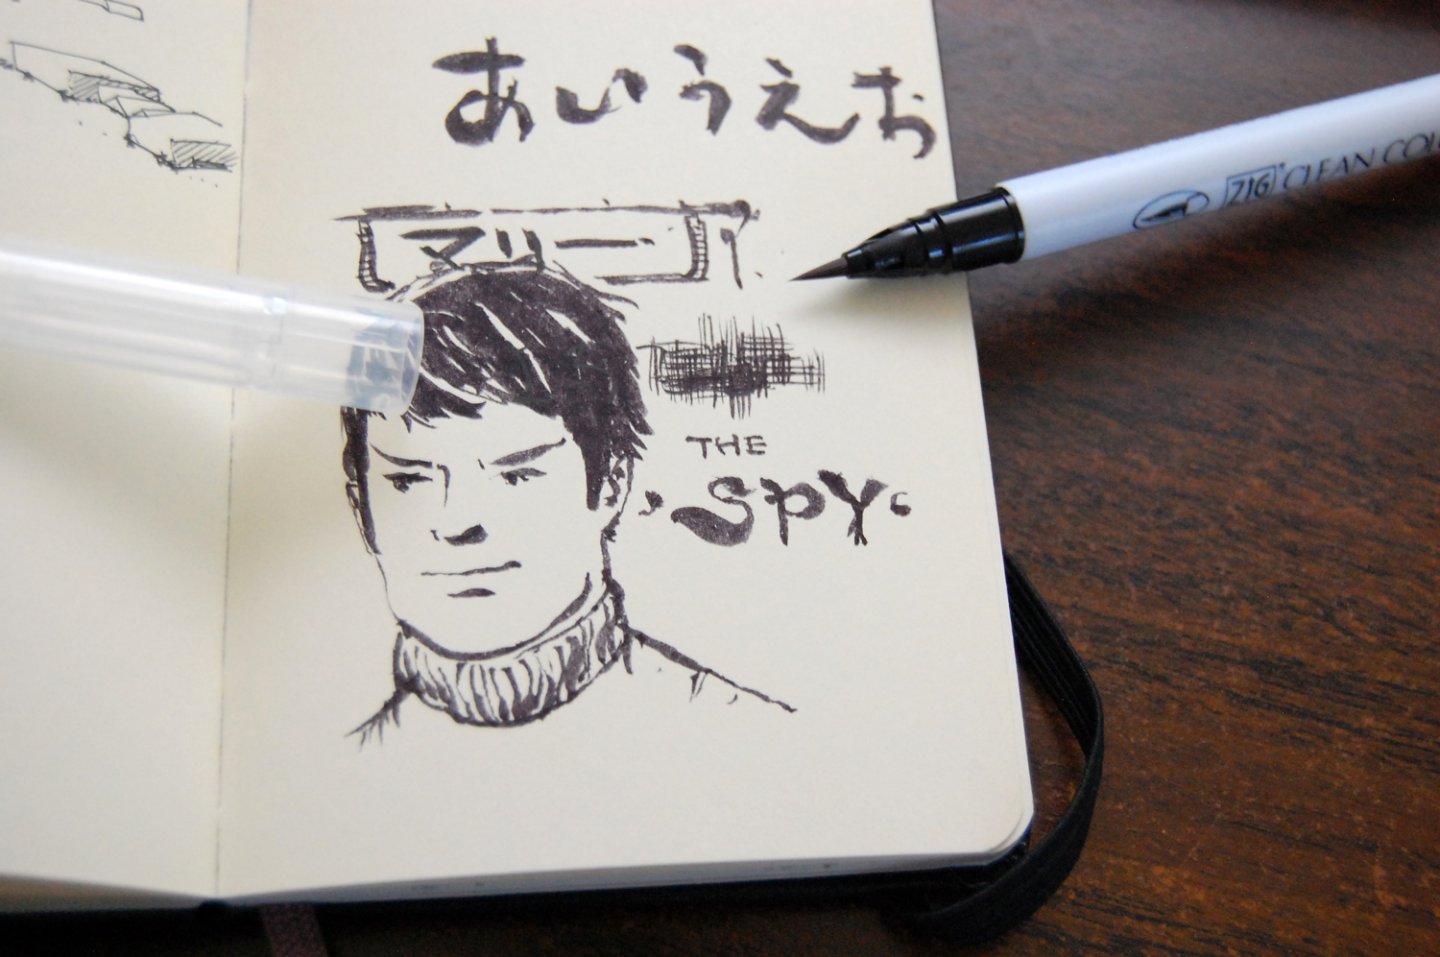 あいうえお
マリー
ZIG CLEAN COL
THE
SPY